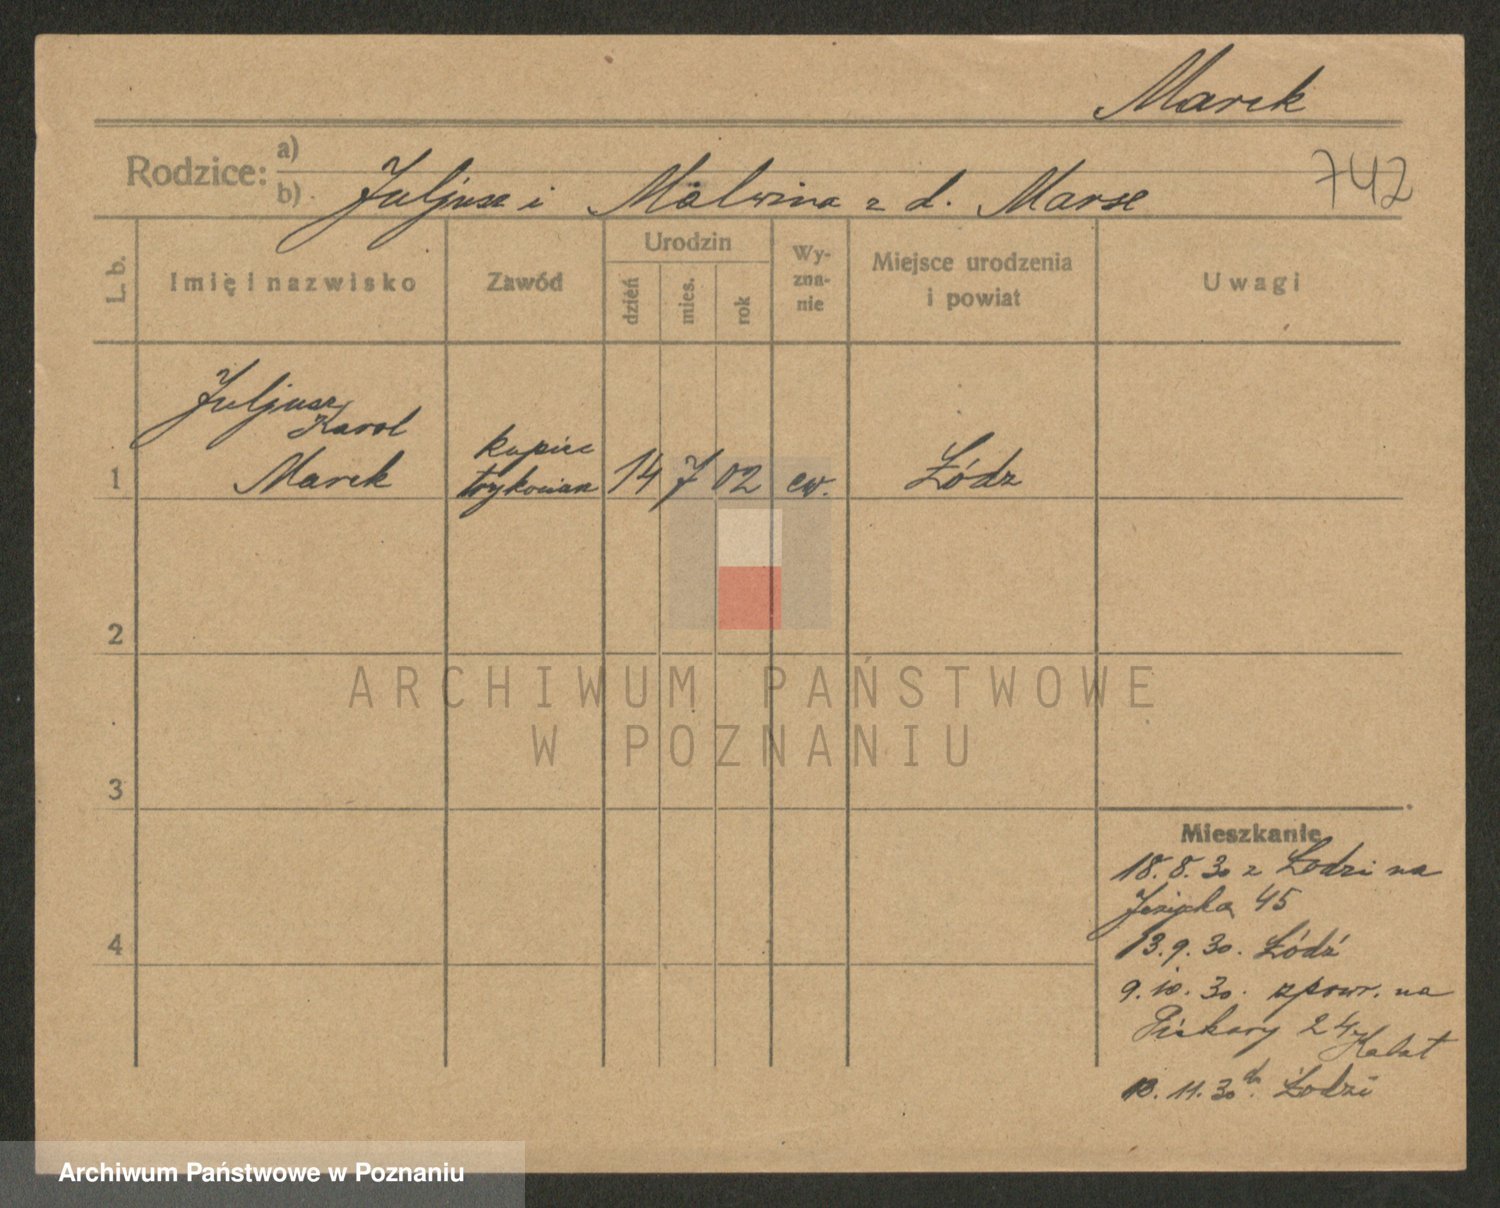 Marek
742
Rodzice: a)
b) Juljusz i Malwina z d. Marse
L. b.
Imię i nazwisko
Zawód
Urodzin
dzień
mies.
rok
Wy-
zna-
nie
Miejsce urodzenia
i powiat
Uwagi
Juljusz
Karol
Marek
kupiec
1
14 7 02 ew. Łódź
2
3
4
Mieszkanie
18.8.30 z Łodzi na
45
13.9.30. Łódź
9.10.30. zpowr. na
Piekary 24
.11.30 do Łodzi
ARCHIWUM PAŃSTWOWE
W POZNANIU
Archiwum Państwowe w Poznaniu